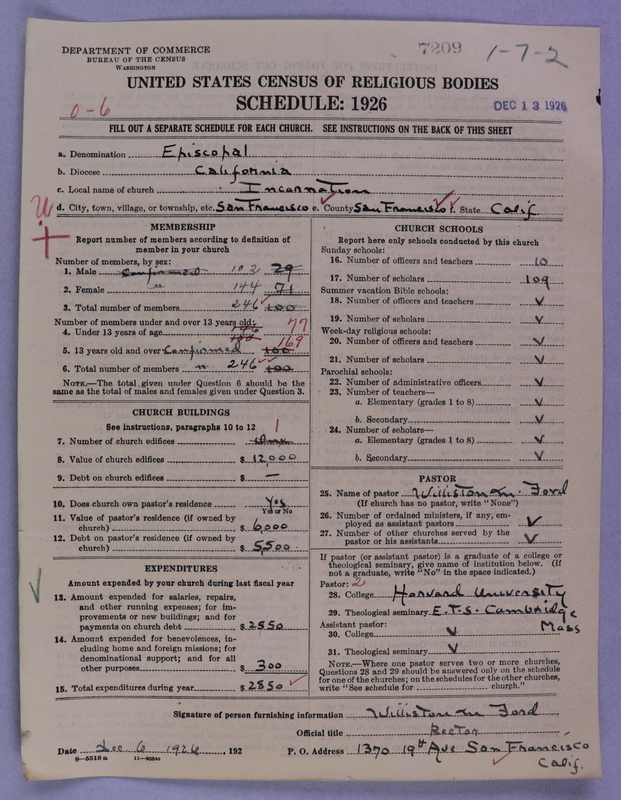 DEPARTMENT OF COMMERCE
BUREAU OF THE CENSUS
WASHINGTON
7209
1-7-2
UNITED STATES CENSUS OF RELIGIOUS BODIES
SCHEDULE: 1926
0-6
DEC 13 1926
FILL OUT A SEPARATE SCHEDULE FOR EACH CHURCH. SEE INSTRUCTIONS ON THE BACK OF THIS SHEET
a. Denomination Episcopal
b. Diocese California
c. Local name of church Incarnation
d. City, town, village, or township, etc. San Francisco e. County San Francisco f. State Calif
MEMBERSHIP
Report number of members according to definition of
member in your church
Number of members, by sex:
1. Male Confirmed 102 29
2. Female " 144 71
3. Total number of members 246 100
Number of members under and over 13 years old:
4. Under 13 years of age 77
5. 13 years old and over Confirmed 100 169
6. Total number of members " 246 100
NOTE.—The total given under Question 6 should be the
same as the total of males and females given under Question 3.
CHURCH BUILDINGS
See instructions, paragraphs 10 to 12
7. Number of church edifices One 1
8. Value of church edifices $ 12,000
9. Debt on church edifices $ —
10. Does church own pastor's residence Yes
Yes or No
11. Value of pastor's residence (if owned by
church) $ 6,000
12. Debt on pastor's residence (if owned by
church) $ 5,500
EXPENDITURES
Amount expended by your church during last fiscal year
13. Amount expended for salaries, repairs,
and other running expenses; for im-
provements or new buildings; and for
payments on church debt $ 2550
14. Amount expended for benevolences, in-
cluding home and foreign missions; for
denominational support; and for all
other purposes $ 300
15. Total expenditures during year $ 2850
CHURCH SCHOOLS
Report here only schools conducted by this church
Sunday schools:
16. Number of officers and teachers 10
17. Number of scholars 109
Summer vacation Bible schools:
18. Number of officers and teachers ✓
19. Number of scholars ✓
Week-day religious schools:
20. Number of officers and teachers ✓
21. Number of scholars ✓
Parochial schools:
22. Number of administrative officers ✓
23. Number of teachers—
a. Elementary (grades 1 to 8) ✓
b. Secondary ✓
24. Number of scholars—
a. Elementary (grades 1 to 8) ✓
b. Secondary ✓
PASTOR
25. Name of pastor Williston M. Ford
(If church has no pastor, write "None")
26. Number of ordained ministers, if any, em-
ployed as assistant pastors ✓
27. Number of other churches served by the
pastor or his assistants ✓
If pastor (or assistant pastor) is a graduate of a college or
theological seminary, give name of institution below. (If
not a graduate, write "No" in the space indicated.)
Pastor: 2
28. College Harvard University
29. Theological seminary E.T.S. Cambridge
Mass
Assistant pastor:
30. College ✓
31. Theological seminary ✓
NOTE.—Where one pastor serves two or more churches,
Questions 28 and 29 should be answered only on the schedule
for one of the churches; on the schedules for the other churches,
write "See schedule for church."
Signature of person furnishing information Williston M Ford
Official title Rector
Date Dec 6 1926, 192 P. O. Address 1370 19th Ave San Francisco
Calif.
8—5518a 11—9083